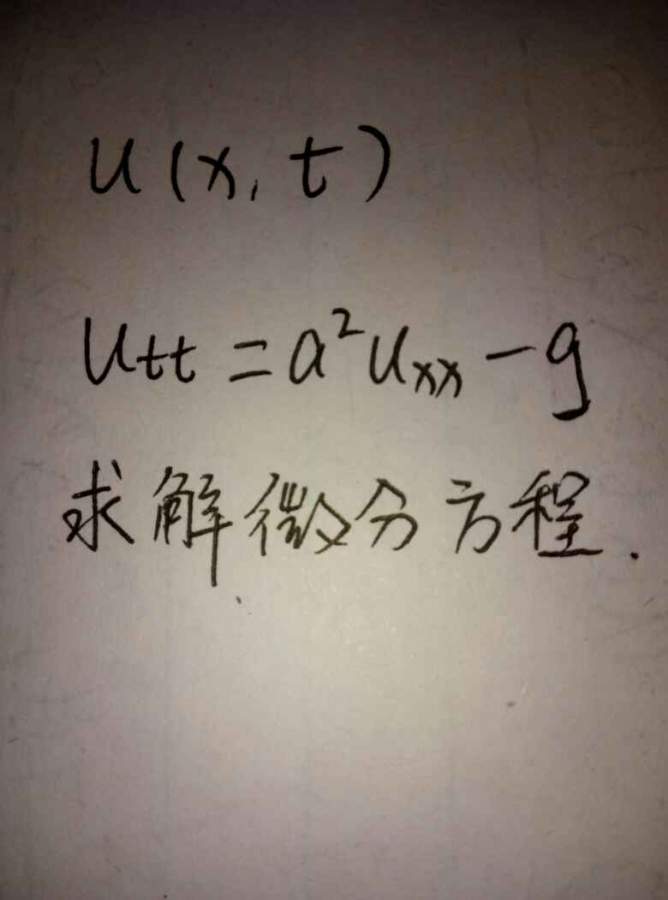 u(x, t)
u_tt = a²u_xx - g
求解微分方程.